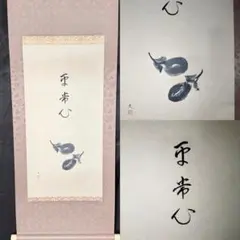 平常心
心
平常心